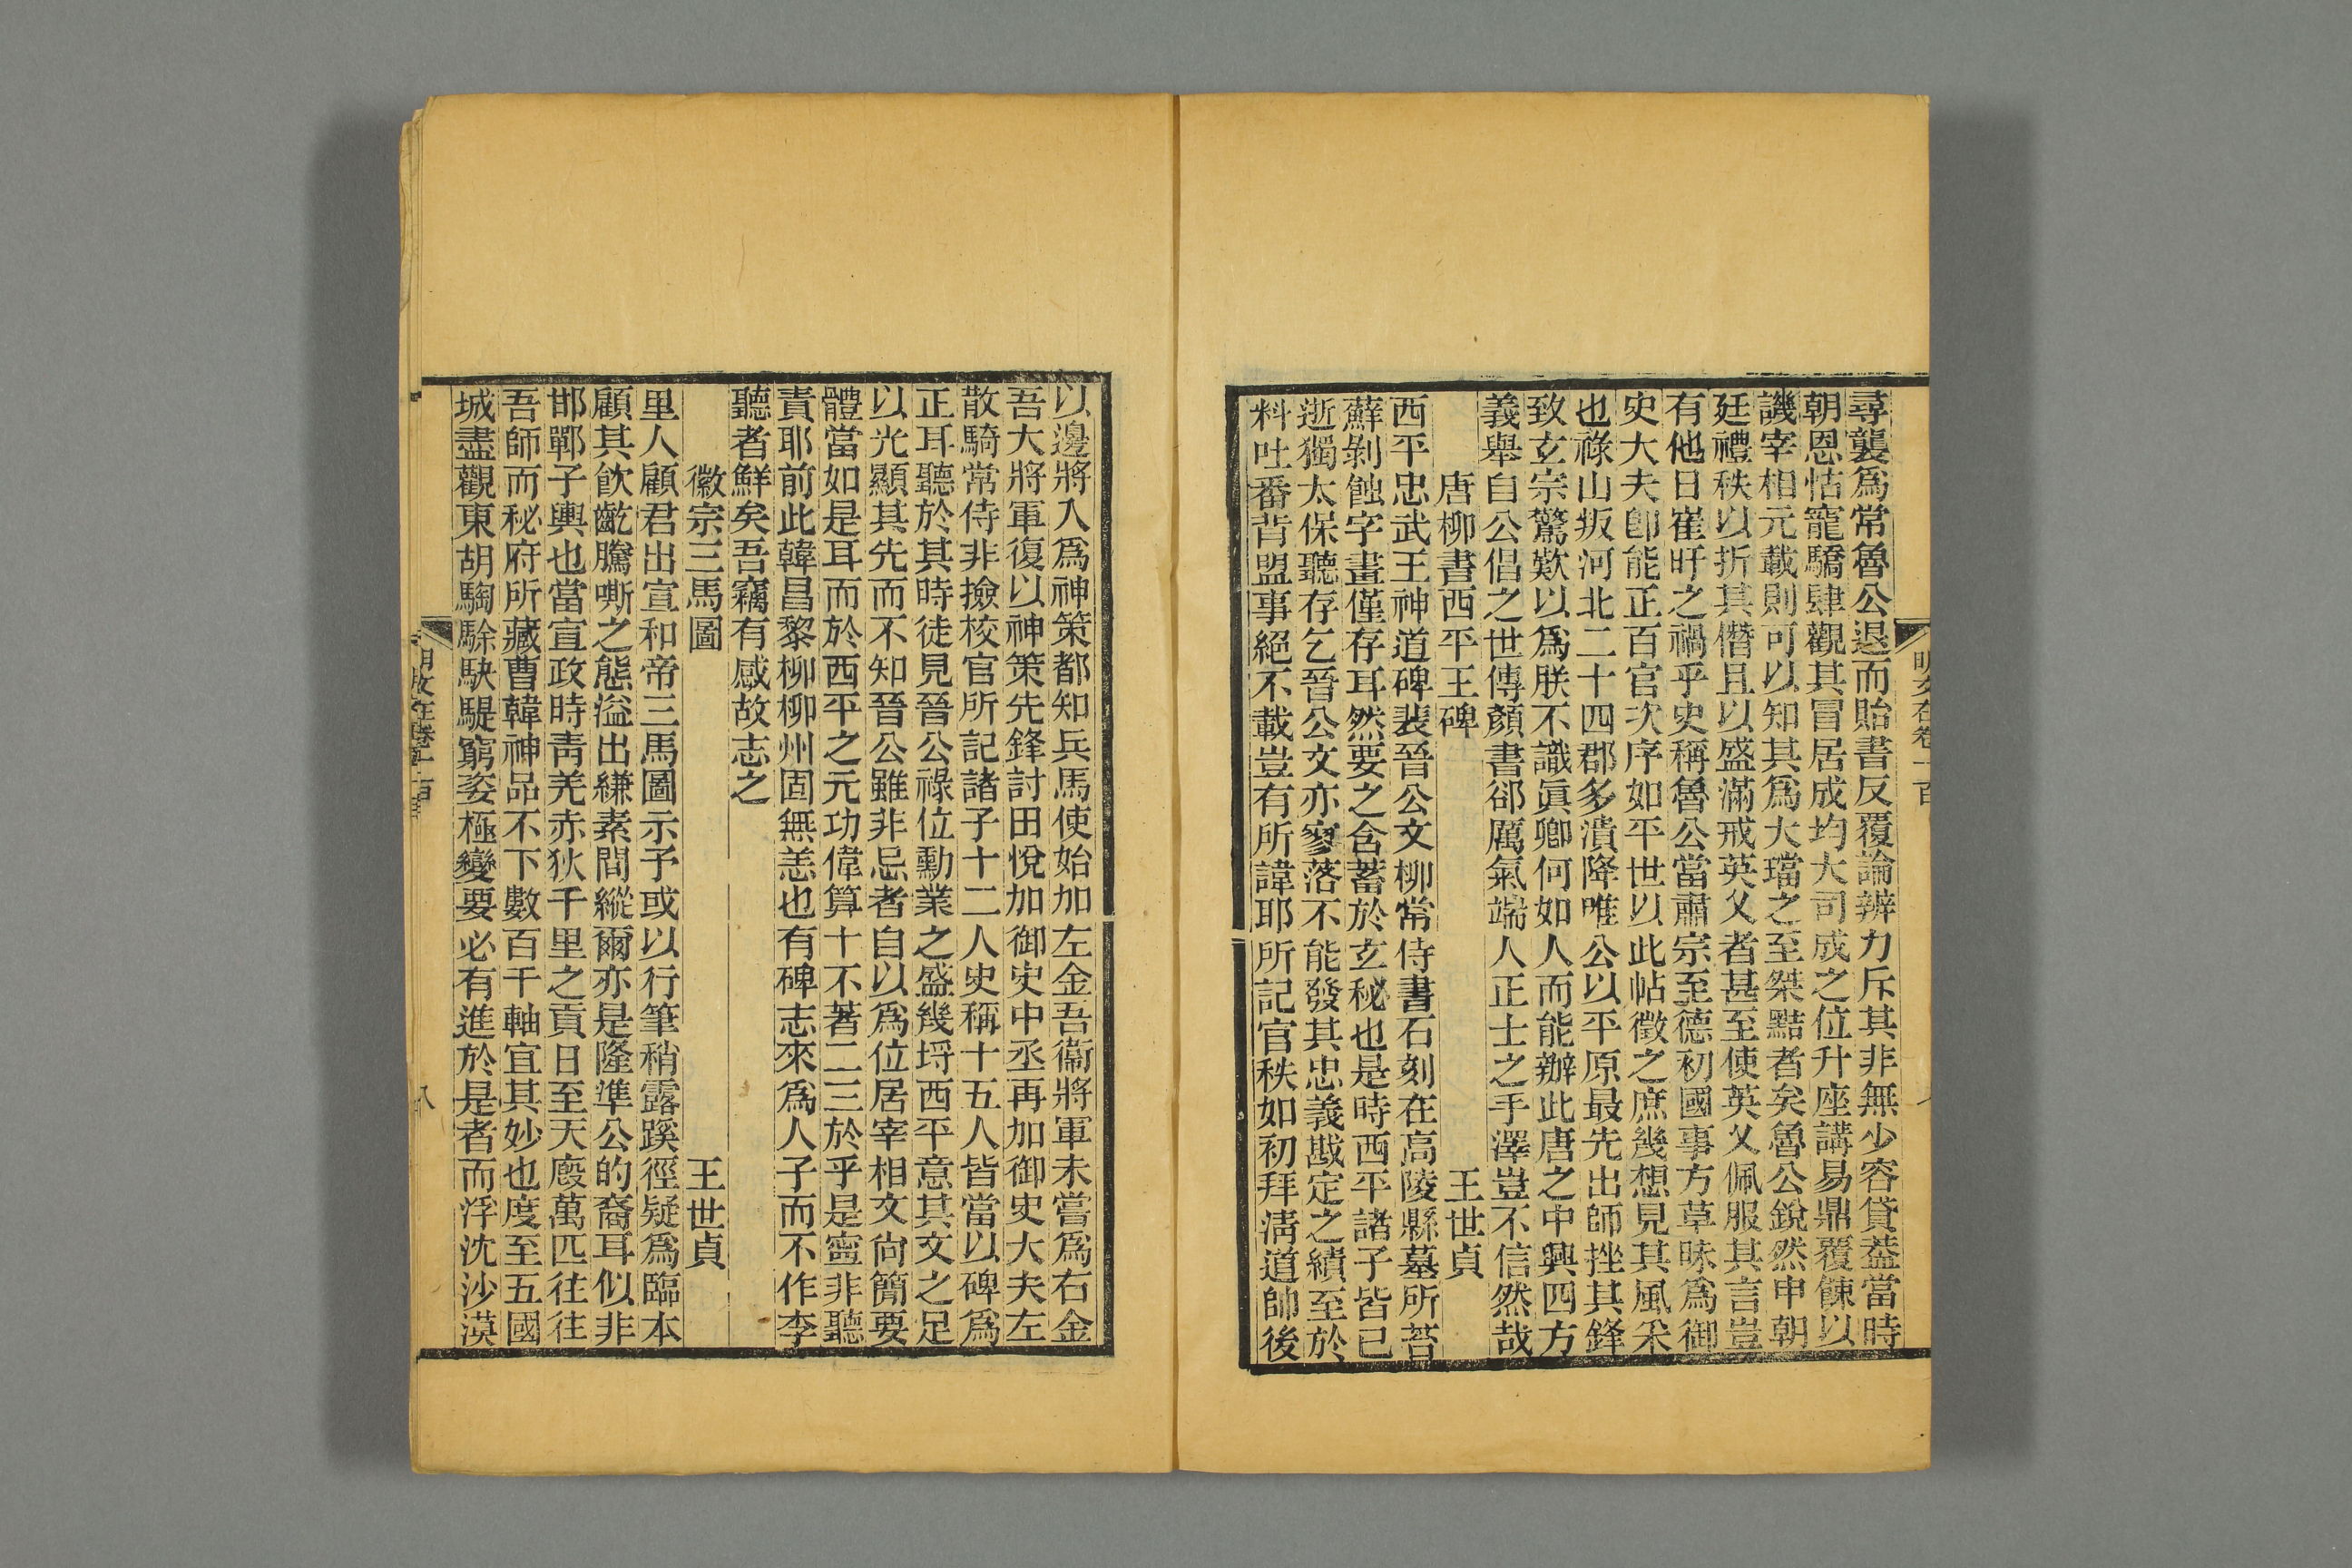 尋襲爲常魯公退而貽書反覆論辨力斥其非無少容貸葢當時
朝恩怙寵驕肆觀其冒居成均大司成之位升座講易鼎覆餗以
譏宰相元載則可以知其爲大璫之至桀黠者矣魯公銳然申朝
廷禮秩以折其僭且以盛滿戒英乂者甚至使英乂佩服其言豈
有他日崔旰之禍乎史稱魯公當肅宗至德初國事方草昧爲御
史大夫卽能正百官次序如平世以此帖徵之庶幾想見其風采
也祿山叛河北二十四郡多潰降唯公以平原最先出師挫其鋒
致玄宗驚歎以爲朕不識眞卿何如人而能辦此唐之中興四方
義舉自公倡之世傳顏書郤厲氣端人正士之手澤豈不信然哉
唐柳書西平王碑 王世貞
西平忠武王神道碑裴晉公文柳常侍書石刻在高陵縣墓所苔
蘚剝蝕字畫僅存耳然要之含蓄於玄秘也是時西平諸子皆已
逝獨太保聽存乞晉公文亦寥落不能發其忠義戡定之績至於
料吐番背盟事絕不載豈有所諱耶所記官秩如初拜淸道帥後
以邊將入爲神策都知兵馬使始加左金吾衞將軍未嘗爲右金
吾大將軍復以神策先鋒討田悅加御史中丞再加御史大夫左
散騎常侍非撿校官所記諸子十二人史稱十五人皆當以碑爲
正耳聽於其時徒見晉公祿位勳業之盛幾埒西平意其文之足
以光顯其先而不知晉公雖非忌者自以爲位居宰相文尙簡要
體當如是耳而於西平之元功偉算十不著二三於乎是寧非聽
責耶前此韓昌黎柳柳州固無恙也有碑志來爲人子而不作李
聽者鮮矣吾竊有感故志之
徽宗三馬圖 王世貞
里人顧君出宣和帝三馬圖示予或以行筆稍露蹊徑疑爲臨本
顧其飮齕騰嘶之態溢出縑素間縱爾亦是隆準公的裔耳似非
邯鄲子輿也當宣政時靑羌赤狄千里之貢日至天廄萬匹往往
吾師而秘府所藏曹韓神品不下數百千軸宜其妙也度至五國
城盡觀東胡騊駼駃騠窮姿極變要必有進於是者而浮沈沙漠
八